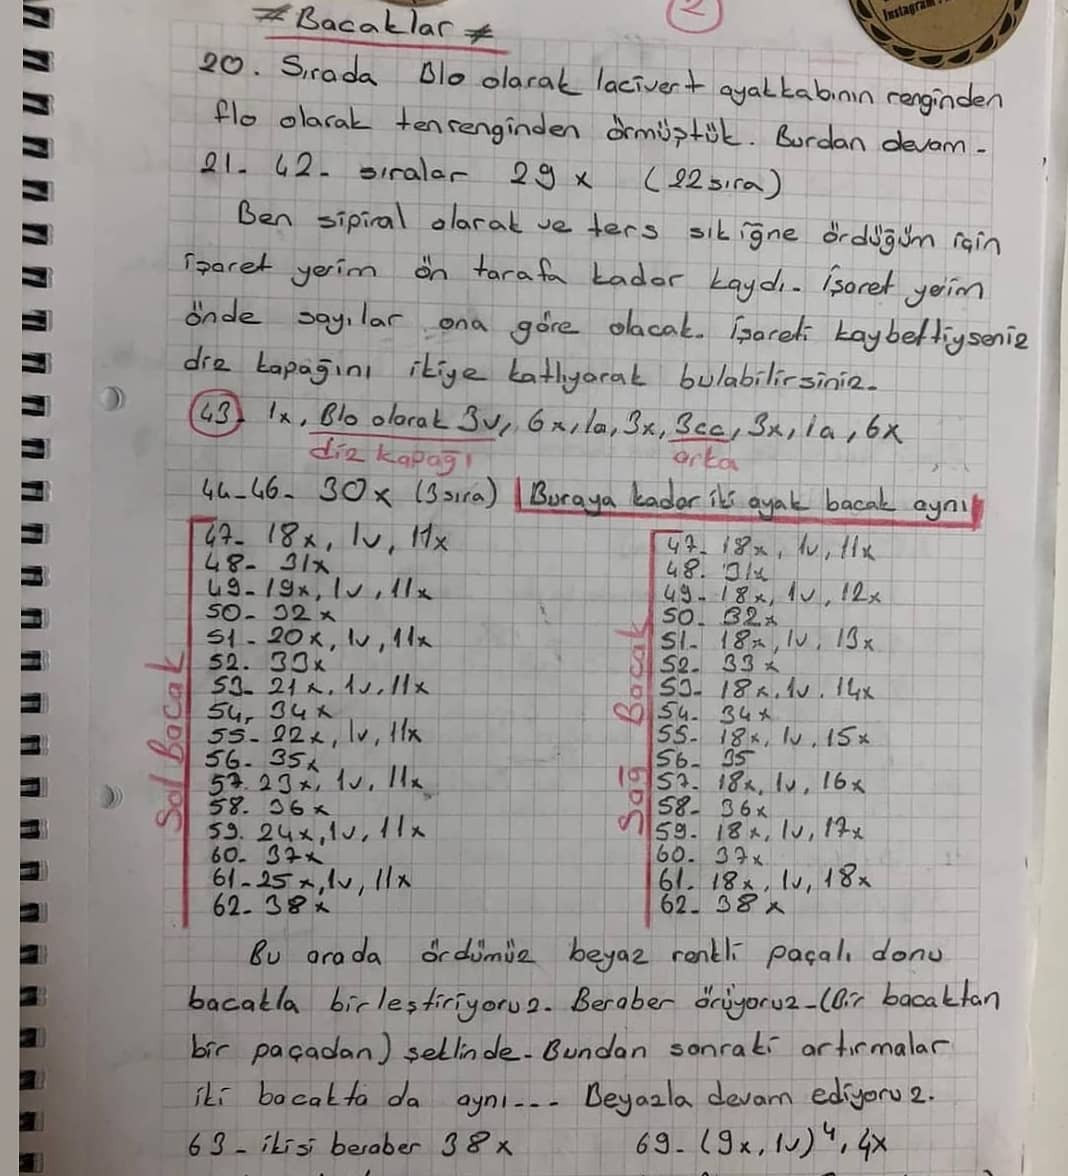 Instagram
2
≠ Bacaklar ≠
20. Sırada Blo olarak lacivert ayakkabının renginden
flo olarak tenrenginden örmüştük. Burdan devam -
21- 42- sıralar 29 x (22 sıra)
Ben sipiral olarak ve ters sık iğne ördüğüm için
işaret yerim ön tarafa kadar kaydı. işaret yerim
önde sayılar ona göre olacak. işareti kaybettiyseniz
diz kapağını ikiye katlıyarak bulabilirsiniz.
43. 1x, Blo olarak 3v, 6x, 1a, 3x, 3cc, 3x, 1a, 6x
diz kapağı orka
44-46- 30x (3 sıra) Buraya kadar iki ayak bacak aynı
Sol Bacak
47- 18x, 1v, 11x
48- 31x
49- 19x, 1v, 11x
50- 32x
51- 20x, 1v, 11x
52. 33x
53- 21x, 1v, 11x
54, 34x
55- 22x, 1v, 11x
56- 35x
57. 23x, 1v, 11x
58. 36x
59. 24x, 1v, 11x
60- 37x
61- 25x, 1v, 11x
62- 38x
Sağ Bacak
47- 18x, 1v, 11x
48. 31x
49- 18x, 1v, 12x
50- 32x
51- 18x, 1v, 13x
52- 33x
53- 18x, 1v, 14x
54- 34x
55- 18x, 1v, 15x
56- 35
57- 18x, 1v, 16x
58- 36x
59- 18x, 1v, 17x
60- 37x
61- 18x, 1v, 18x
62- 38x
Bu arada ördümüz beyaz renkli paçalı donu
bacakla birleştiriyoruz. Beraber örüyoruz-(Bir bacaktan
bir paçadan) şeklinde. Bundan sonraki artırmalar
iki bacakta da aynı... Beyazla devam ediyoruz.
63- ikisi beraber 38x 69- (9x, 1v)⁴, 4x